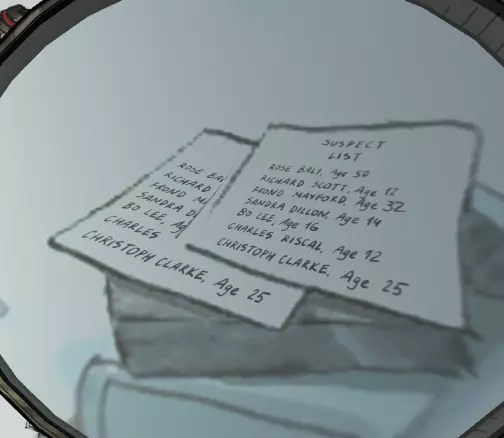 ROSE BAL
RICHARD
FROND M
SANDRA D
BO LEE, Ag
CHARLES
CHRISTOPH CLARKE, Age 25
SUSPECT
LIST
ROSE BALI, Age 50
RICHARD SCOTT, Age 12
FROND MAYFORD, Age 32
SANDRA DILLON, Age 14
BO LEE, Age 16
CHARLES RISCAL, Age 12
CHRISTOPH CLARKE, Age 25